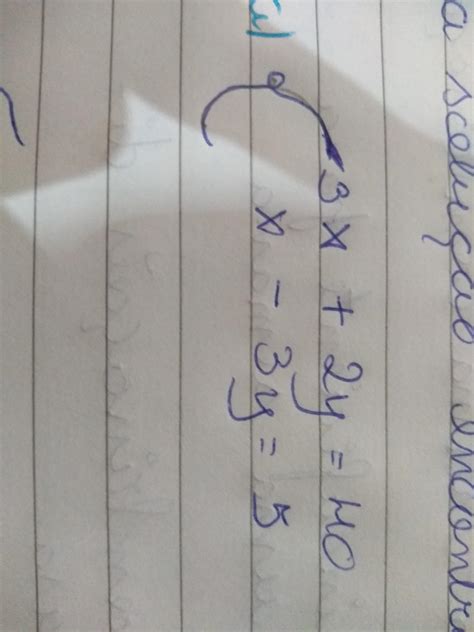 a solução encontr
3x + 2y = 40
x - 3y = 5